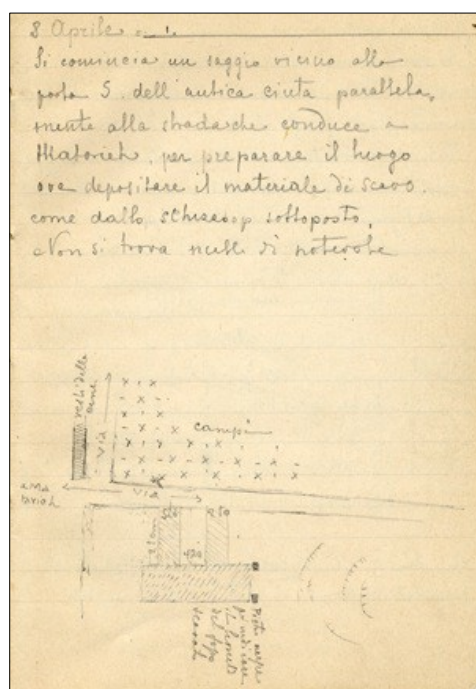 8 Aprile
Si comincia un saggio vicino alla
porta S. dell'antica cinta parallela-
mente alla strada che conduce a
Matarieh, per preparare il luogo
ove depositare il materiale di scavo.
come dallo schizzo sottoposto.
Non si trova nulla di notevole
resti delle
via
campi
a Ma
tarieh
via
250
420
Pietre
per indicare
il limite
del
scavato